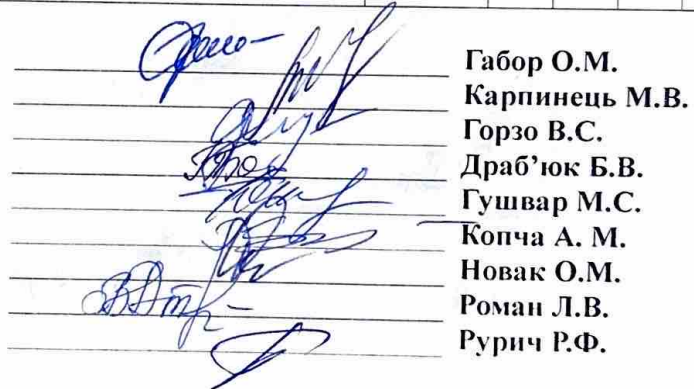 Габор О.М.
Карпинець М.В.
Горзо В.С.
Драб’юк Б.В.
Гушвар М.С.
Копча А. М.
Новак О.М.
Роман Л.В.
Рурич Р.Ф.